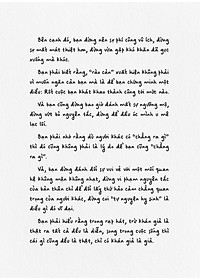 Bên cạnh đó, bạn đừng nên sợ phí công vô ích, đừng
sợ mất mát thiệt hơn, đừng vừa gặp khó khăn đã gục
xuống mà khóc.
Bạn phải biết rằng, "rào cản" xuất hiện không phải
vì muốn ngăn cản bạn mà là để bạn chứng minh một
điều: Rốt cuộc bạn khát khao thành công tới mức nào.
Và bạn cũng đừng bao giờ đánh mất sự ngưỡng mộ,
đừng vứt bỏ nguyên tắc, đừng để đầu óc mình u mê
lạc lối.
Bạn phải nhớ rằng dù người khác có "chẳng ra gì"
thì đó cũng không phải là lý do để bạn cũng "chẳng
ra gì".
Và, bạn đừng đánh đổi sự vui vẻ với một mối quan
hệ không mấy khăng khít, đừng vi phạm nguyên tắc
của bản thân chỉ để đổi lấy thứ hào cảm chẳng quan
trọng của người khác, đừng coi "tự nguyện hy sinh" là
điều gì đó vĩ đại.
Bạn phải hiểu rằng trong rạp hát, trừ khán giả là
thật ra tất cả đều là diễn, song trong cuộc sống thì
cái gì cũng đều là thật, chỉ có khán giả là giả.